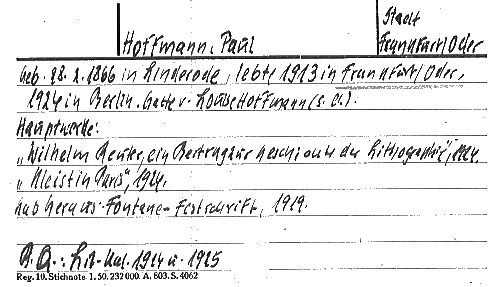 Stadt
Hoffmann, Paul Frankfurt/Oder
Geb. 28. 2. 1866 in Hinderode, lebte 1913 in Frankfurt/Oder,
1924 in Berlin. Gatte v. Louise Hoffmann (s. d.).
Hauptwerke:
„Wilhelm Reuter, ein Beitrag zur Geschichte der Lithographie", 1924.
„Kleist in Paris", 1924.
Gab heraus: Fontane-Festschrift, 1919.
B. Q.: Lit-Kal. 1924 u. 1925
Reg. 10. Stichnote 1. 50. 232 000. A. 603. S. 4062